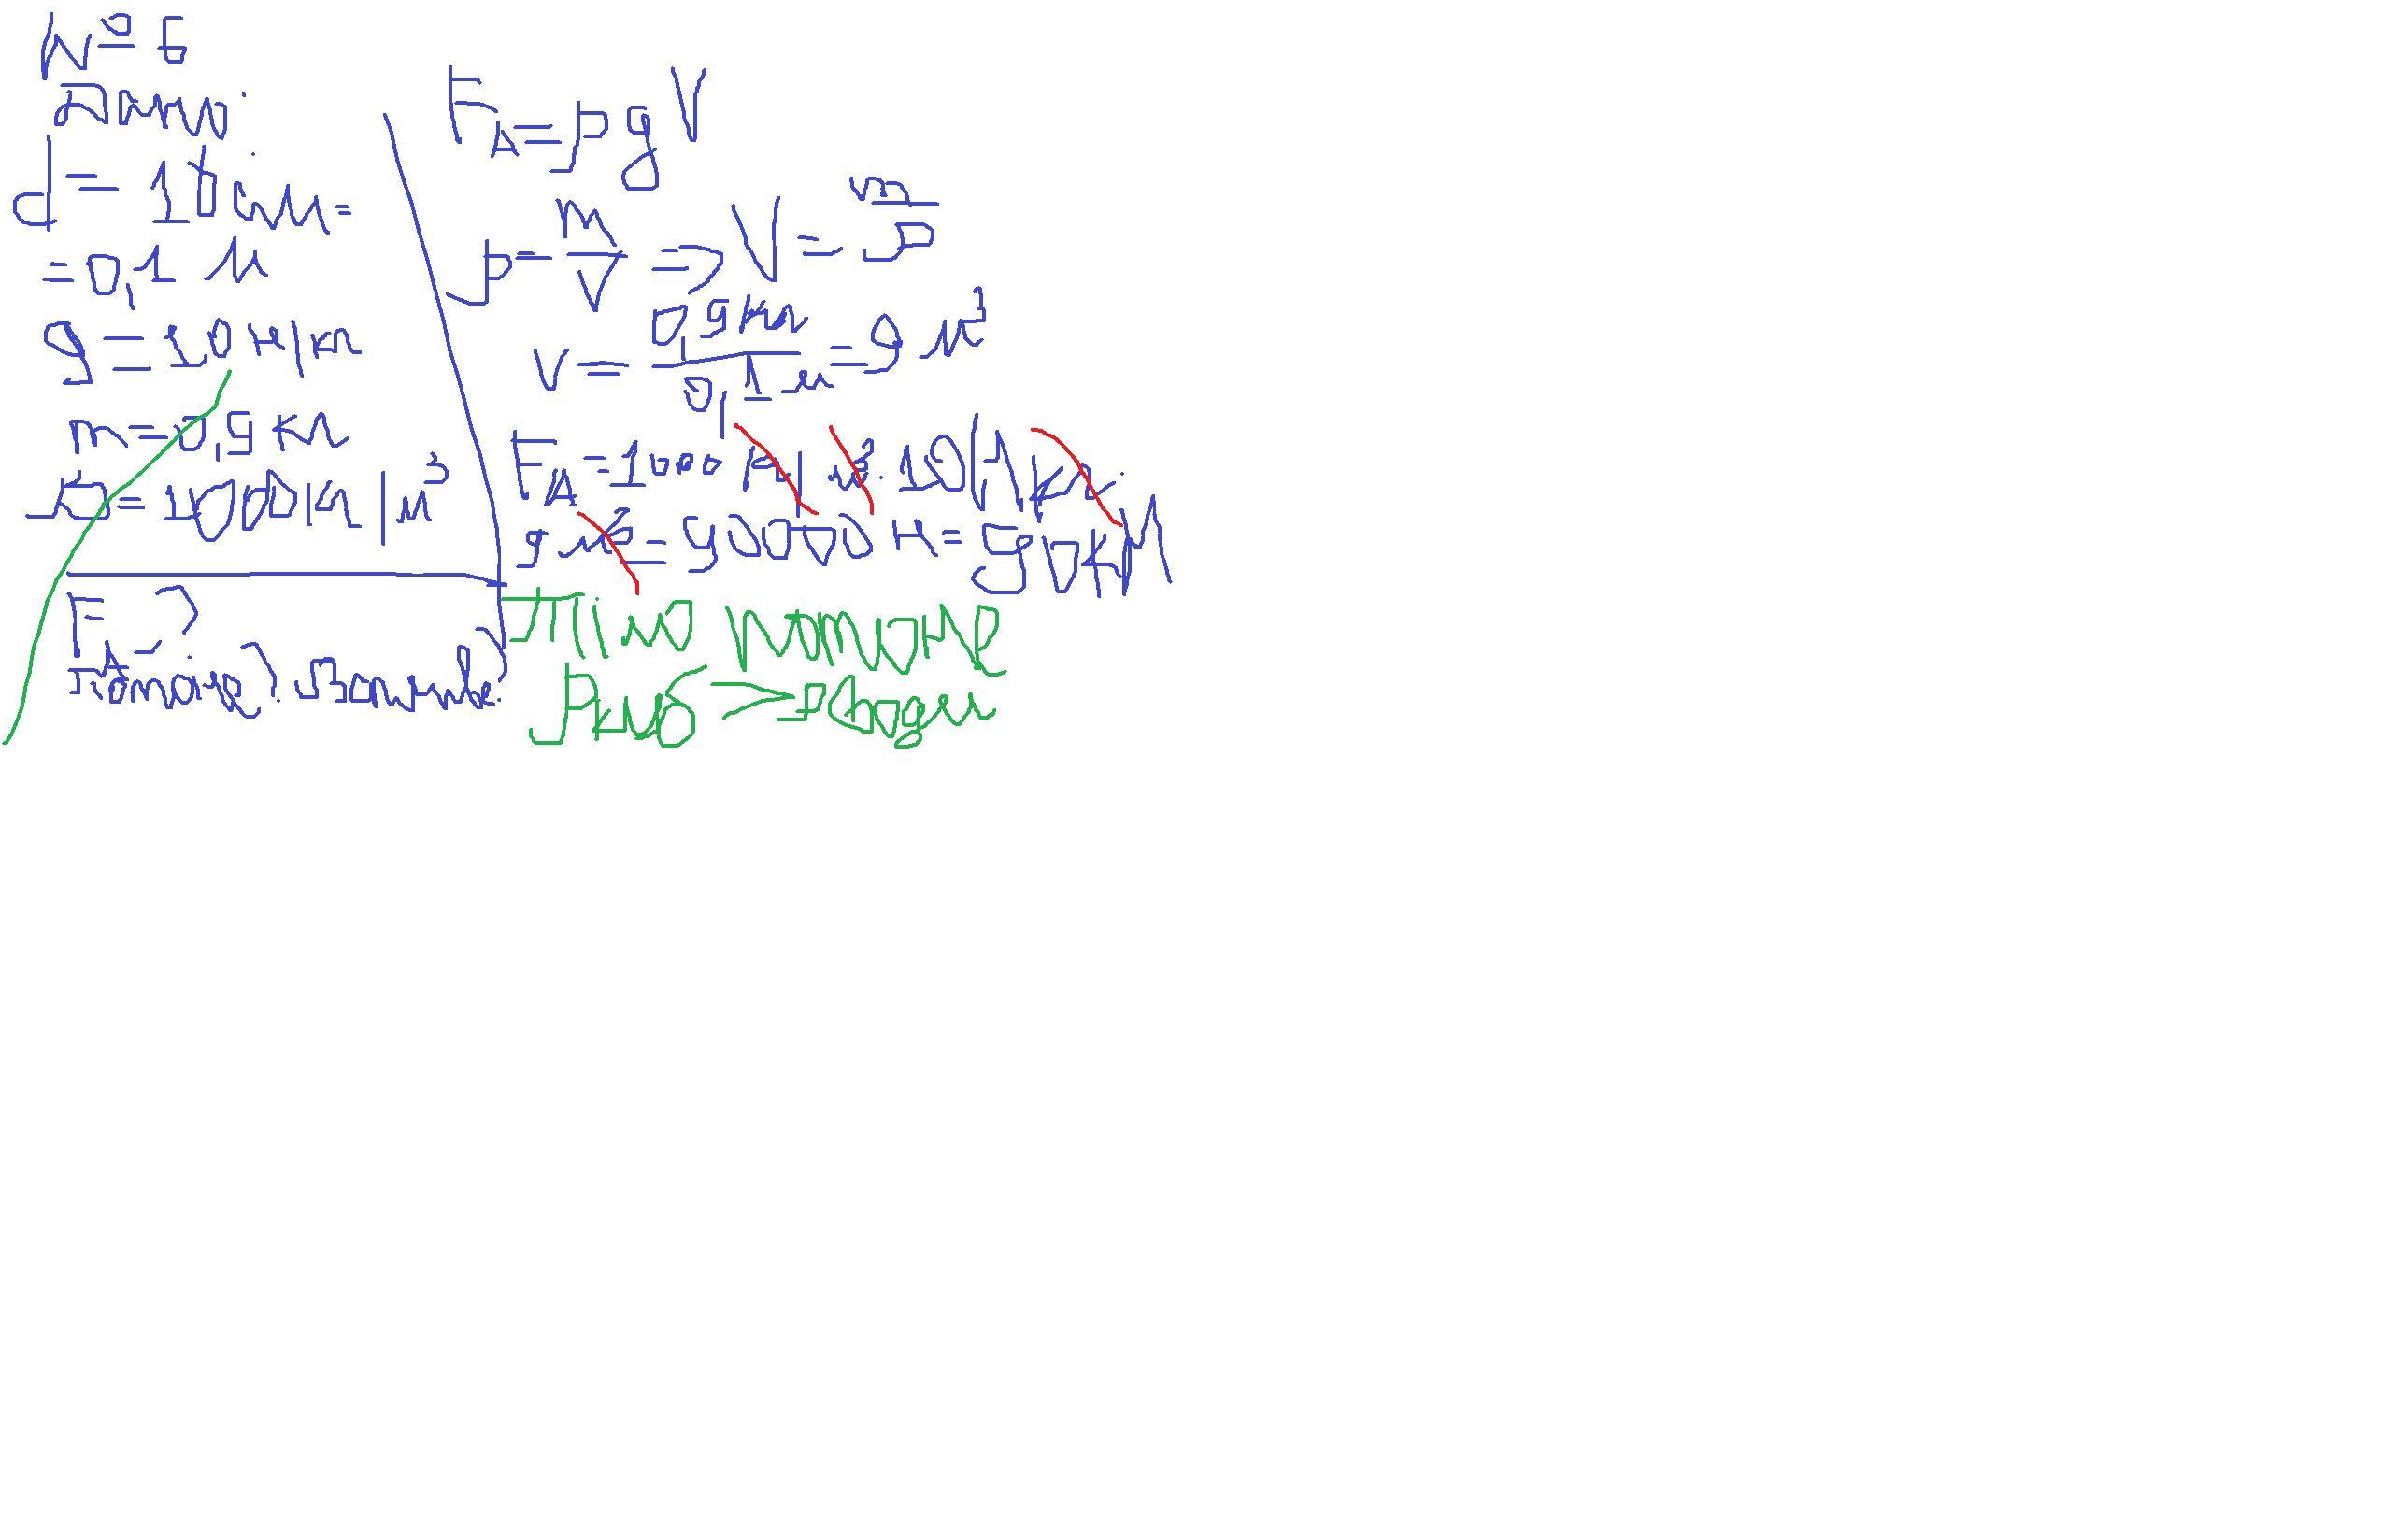 № 6
Дано:
d = 10 см =
= 0,1 м
g = 10 Н/кг
m = 0,9 кг
ρ = 1000 кг/м³
F_A - ?
F_A = ρgV
ρ = m/V => V = m/ρ
V = 0,9 кг / 0,1 м = 9 м³
F_A = 1000 кг/м³ · 10 Н/кг ·
9 м³ = 90000 Н = 90 кН
Тіло потоне
ρ куб > ρ води